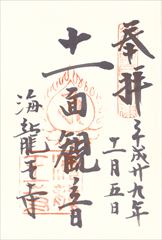 奉拝
平成廿九年
十一月五日
十一面観音
海龍王寺